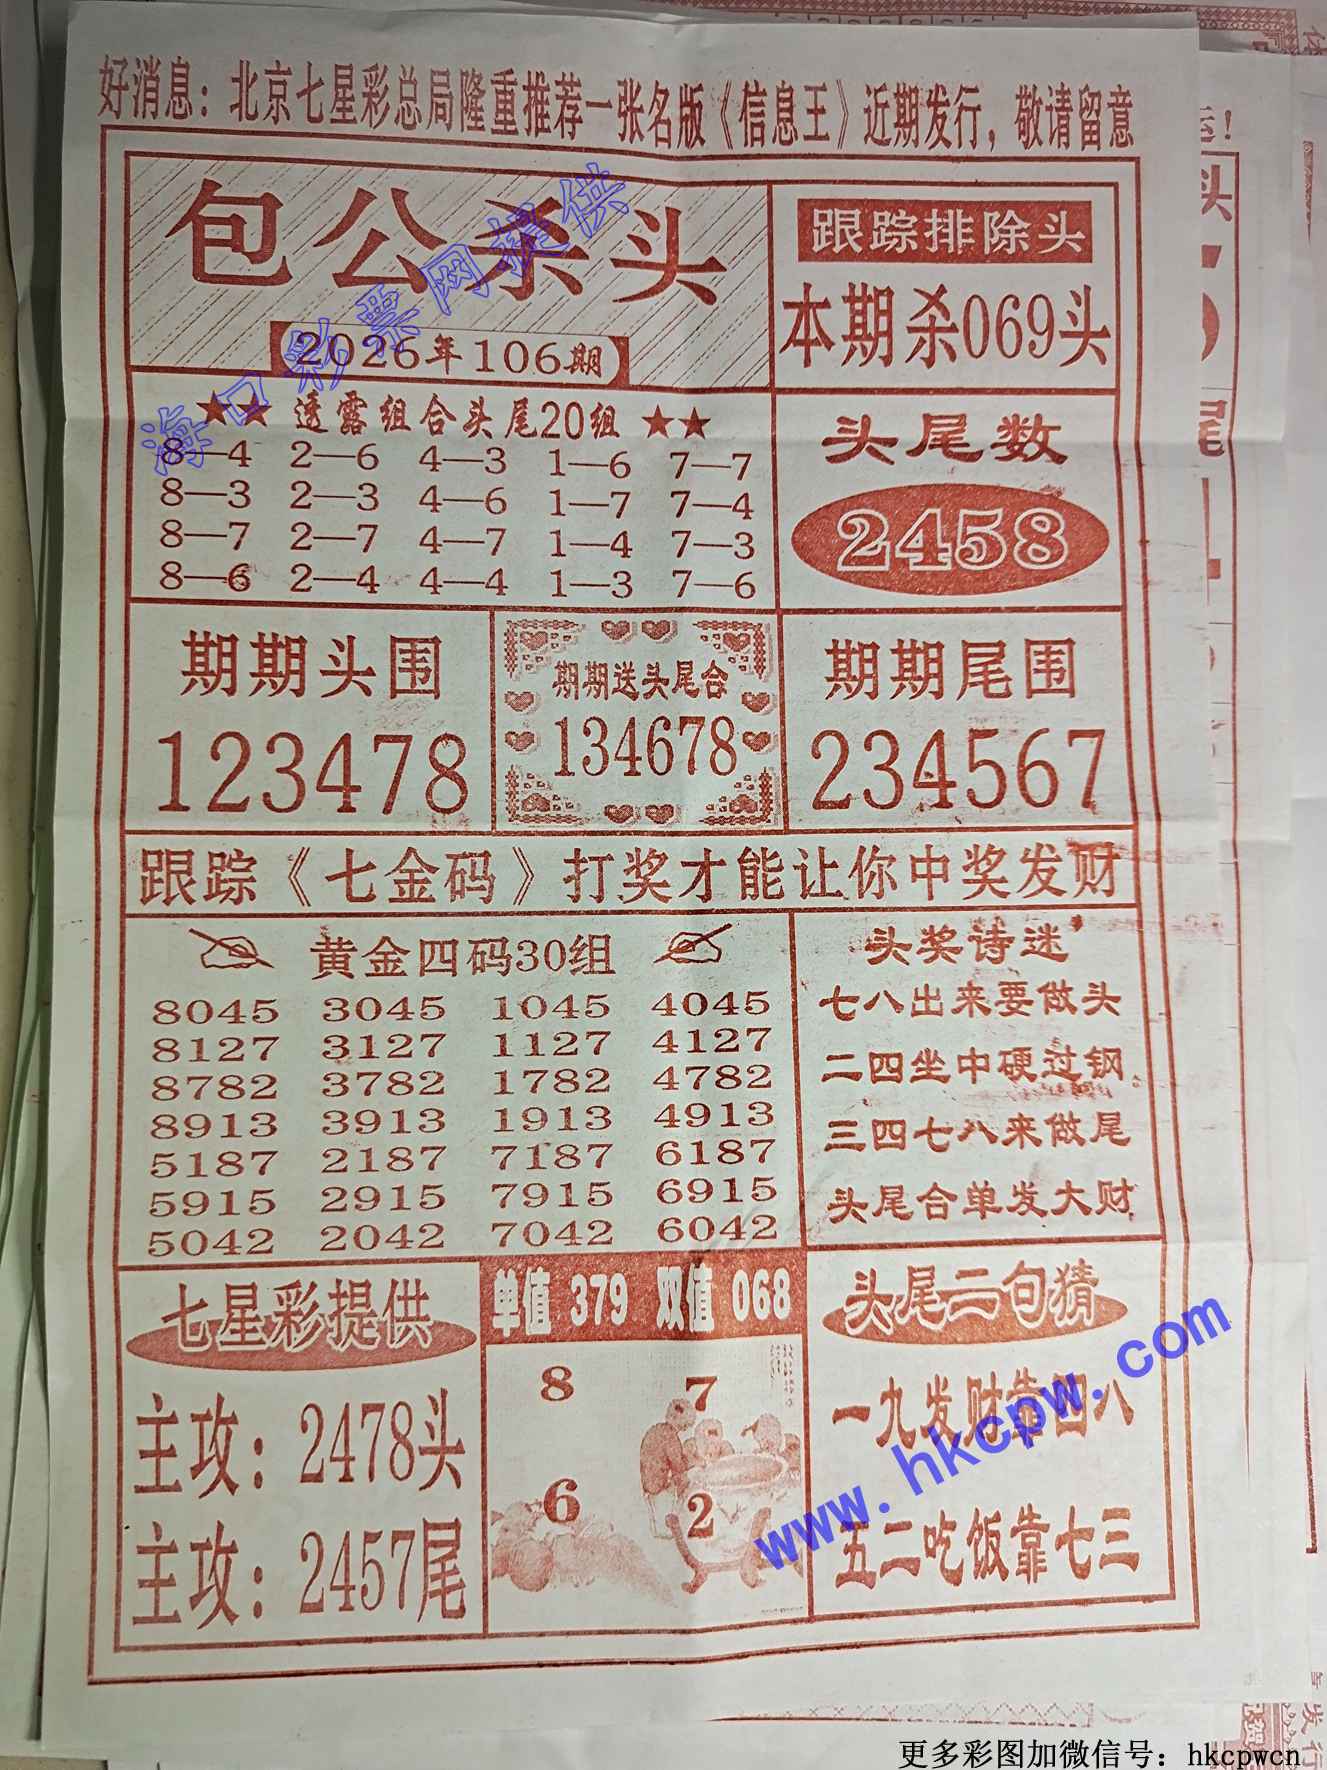 好消息：北京七星彩总局隆重推荐一张名版《信息王》近期发行，敬请留意
包公杀头
2026年106期
跟踪排除头
本期杀069头
★★ 透露组合头尾20组 ★★
8—4 2—6 4—3 1—6 7—7
8—3 2—3 4—6 1—7 7—4
8—7 2—7 4—7 1—4 7—3
8—6 2—4 4—4 1—3 7—6
头尾数
2458
期期头围
123478
期期送头尾合
134678
期期尾围
234567
跟踪《七金码》打奖才能让你中奖发财
黄金四码30组
8045 3045 1045 4045
8127 3127 1127 4127
8782 3782 1782 4782
8913 3913 1913 4913
5187 2187 7187 6187
5915 2915 7915 6915
5042 2042 7042 6042
头奖诗迷
七八出来要做头
二四坐中硬过钢
三四七八来做尾
头尾合单发大财
七星彩提供
主攻：2478头
主攻：2457尾
单值 379 双值 068
8 7
6 2
头尾二句猜
一九发财靠四八
五二吃饭靠七三
海口彩票网提供
www.hkcpw.com
更多彩图加微信号：hkcpwcn